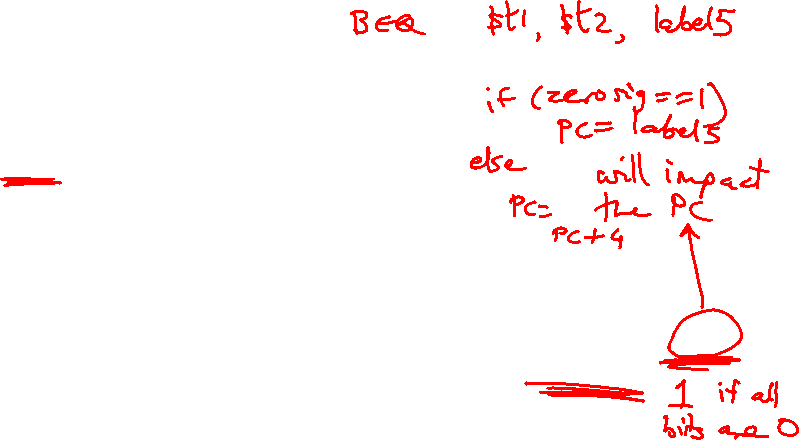 BEQ $t1, $t2, label5
if (zerosig==1)
PC= label5
else will impact
PC= the PC
PC+4
1 if all
bits are 0